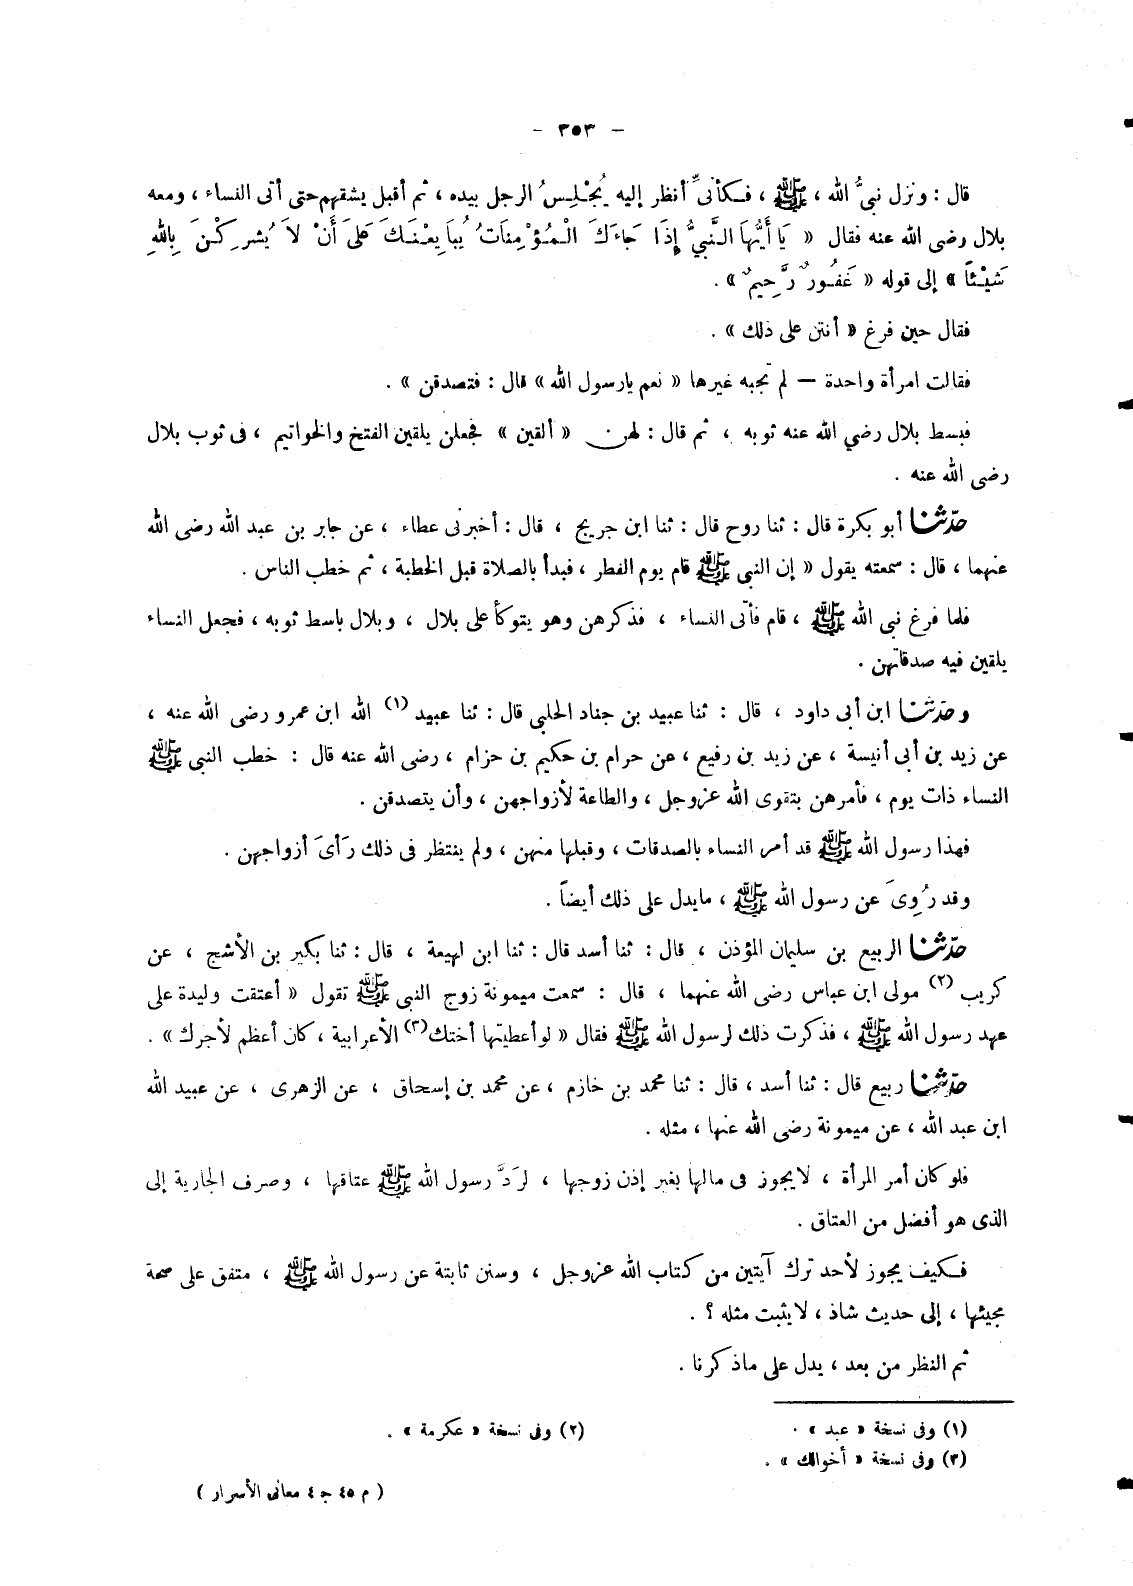 — ٣٥٣ —
قال : ونزل نبيُّ الله ، ﷺ ، فكأنيِّ أنظر إليه يُجْلِسُ الرجل بيده ، ثم أقبل يشقهم حتى أتى النساء ، ومعه
بلال رضى الله عنه فقال « يَا أَيُّهَا النَّبيُّ إِذَا جَاءَكَ الْمُؤْمِنَاتُ يُبَايِعْنَكَ عَلَى أَنْ لاَ يُشْرِكْنَ بِاللهِ
شَيْئاً » إلى قوله « غَفُورٌ رَّحِيمٌ » .
فقال حين فرغ « أنتن على ذلك » .
فقالت امرأة واحدة — لم تجبه غيرها « نعم يارسول الله » قال : فتصدقن » .
فبسط بلال رضي الله عنه ثوبه ، ثم قال : لهن « ألقين » فجعلن يلقين الفتخ والخواتيم ، فى ثوب بلال
رضى الله عنه .
حدّثنا أبو بكرة قال : ثنا روح قال : ثنا ابن جريج ، قال : أخبرنى عطاء ، عن جابر بن عبد الله رضى الله
عنهما ، قال : سمعته يقول « إن النبى ﷺ قام يوم الفطر ، فبدأ بالصلاة قبل الخطبة ، ثم خطب الناس .
فلما فرغ نبى الله ﷺ ، قام فأتى النساء ، فذكرهن وهو يتوكأ على بلال ، وبلال باسط ثوبه ، فجعل النساء
يلقين فيه صدقاتهن .
وحدّثنا ابن أبى داود ، قال : ثنا عبيد بن جناد الحلبى قال : ثنا عبيد (١) الله ابن عمرو رضى الله عنه ،
عن زيد بن أبى أنيسة ، عن زيد بن رفيع ، عن حرام بن حكيم بن حزام ، رضى الله عنه قال : خطب النبى ﷺ
النساء ذات يوم ، فأمرهن بتقوى الله عزوجل ، والطاعة لأزواجهن ، وأن يتصدقن .
فهذا رسول الله ﷺ قد أمر النساء بالصدقات ، وقبلها منهن ، ولم ينتظر فى ذلك رَأىَ أزواجهن .
وقد رُوِىَ عن رسول الله ﷺ ، مايدل على ذلك أيضاً .
حدّثنا الربيع بن سليمان المؤذن ، قال : ثنا أسد قال : ثنا ابن لهيعة ، قال : ثنا بكير بن الأشج ، عن
كريب (٢) مولى ابن عباس رضى الله عنهما ، قال : سمعت ميمونة زوج النبى ﷺ تقول « أعتقت وليدة على
عهد رسول الله ﷺ ، فذكرت ذلك لرسول الله ﷺ فقال « لو أعطيتها أختك (٣) الأعرابية ، كان أعظم لأجرك » .
حدّثنا ربيع قال : ثنا أسد ، قال : ثنا محمد بن خازم ، عن محمد بن إسحاق ، عن الزهرى ، عن عبيد الله
ابن عبد الله ، عن ميمونة رضى الله عنها ، مثله .
فلو كان أمر المرأة ، لايجوز فى مالها بغير إذن زوجها ، لرَدَّ رسول الله ﷺ عتاقها ، وصرف الجارية إلى
الذى هو أفضل من العتاق .
فكيف يجوز لأحد ترك آيتين من كتاب الله عزوجل ، وسنن ثابتة عن رسول الله ﷺ ، متفق على صحة
مجيئها ، إلى حديث شاذ ، لايثبت مثله ؟ .
ثم النظر من بعد ، يدل على ماذكرنا .
(١) وفى نسخة « عبد » . (٢) وفى نسخة « عكرمة » .
(٣) وفى نسخة « أخوالك » .
( م ٤٥ ج ٤ معانى الأسرار )